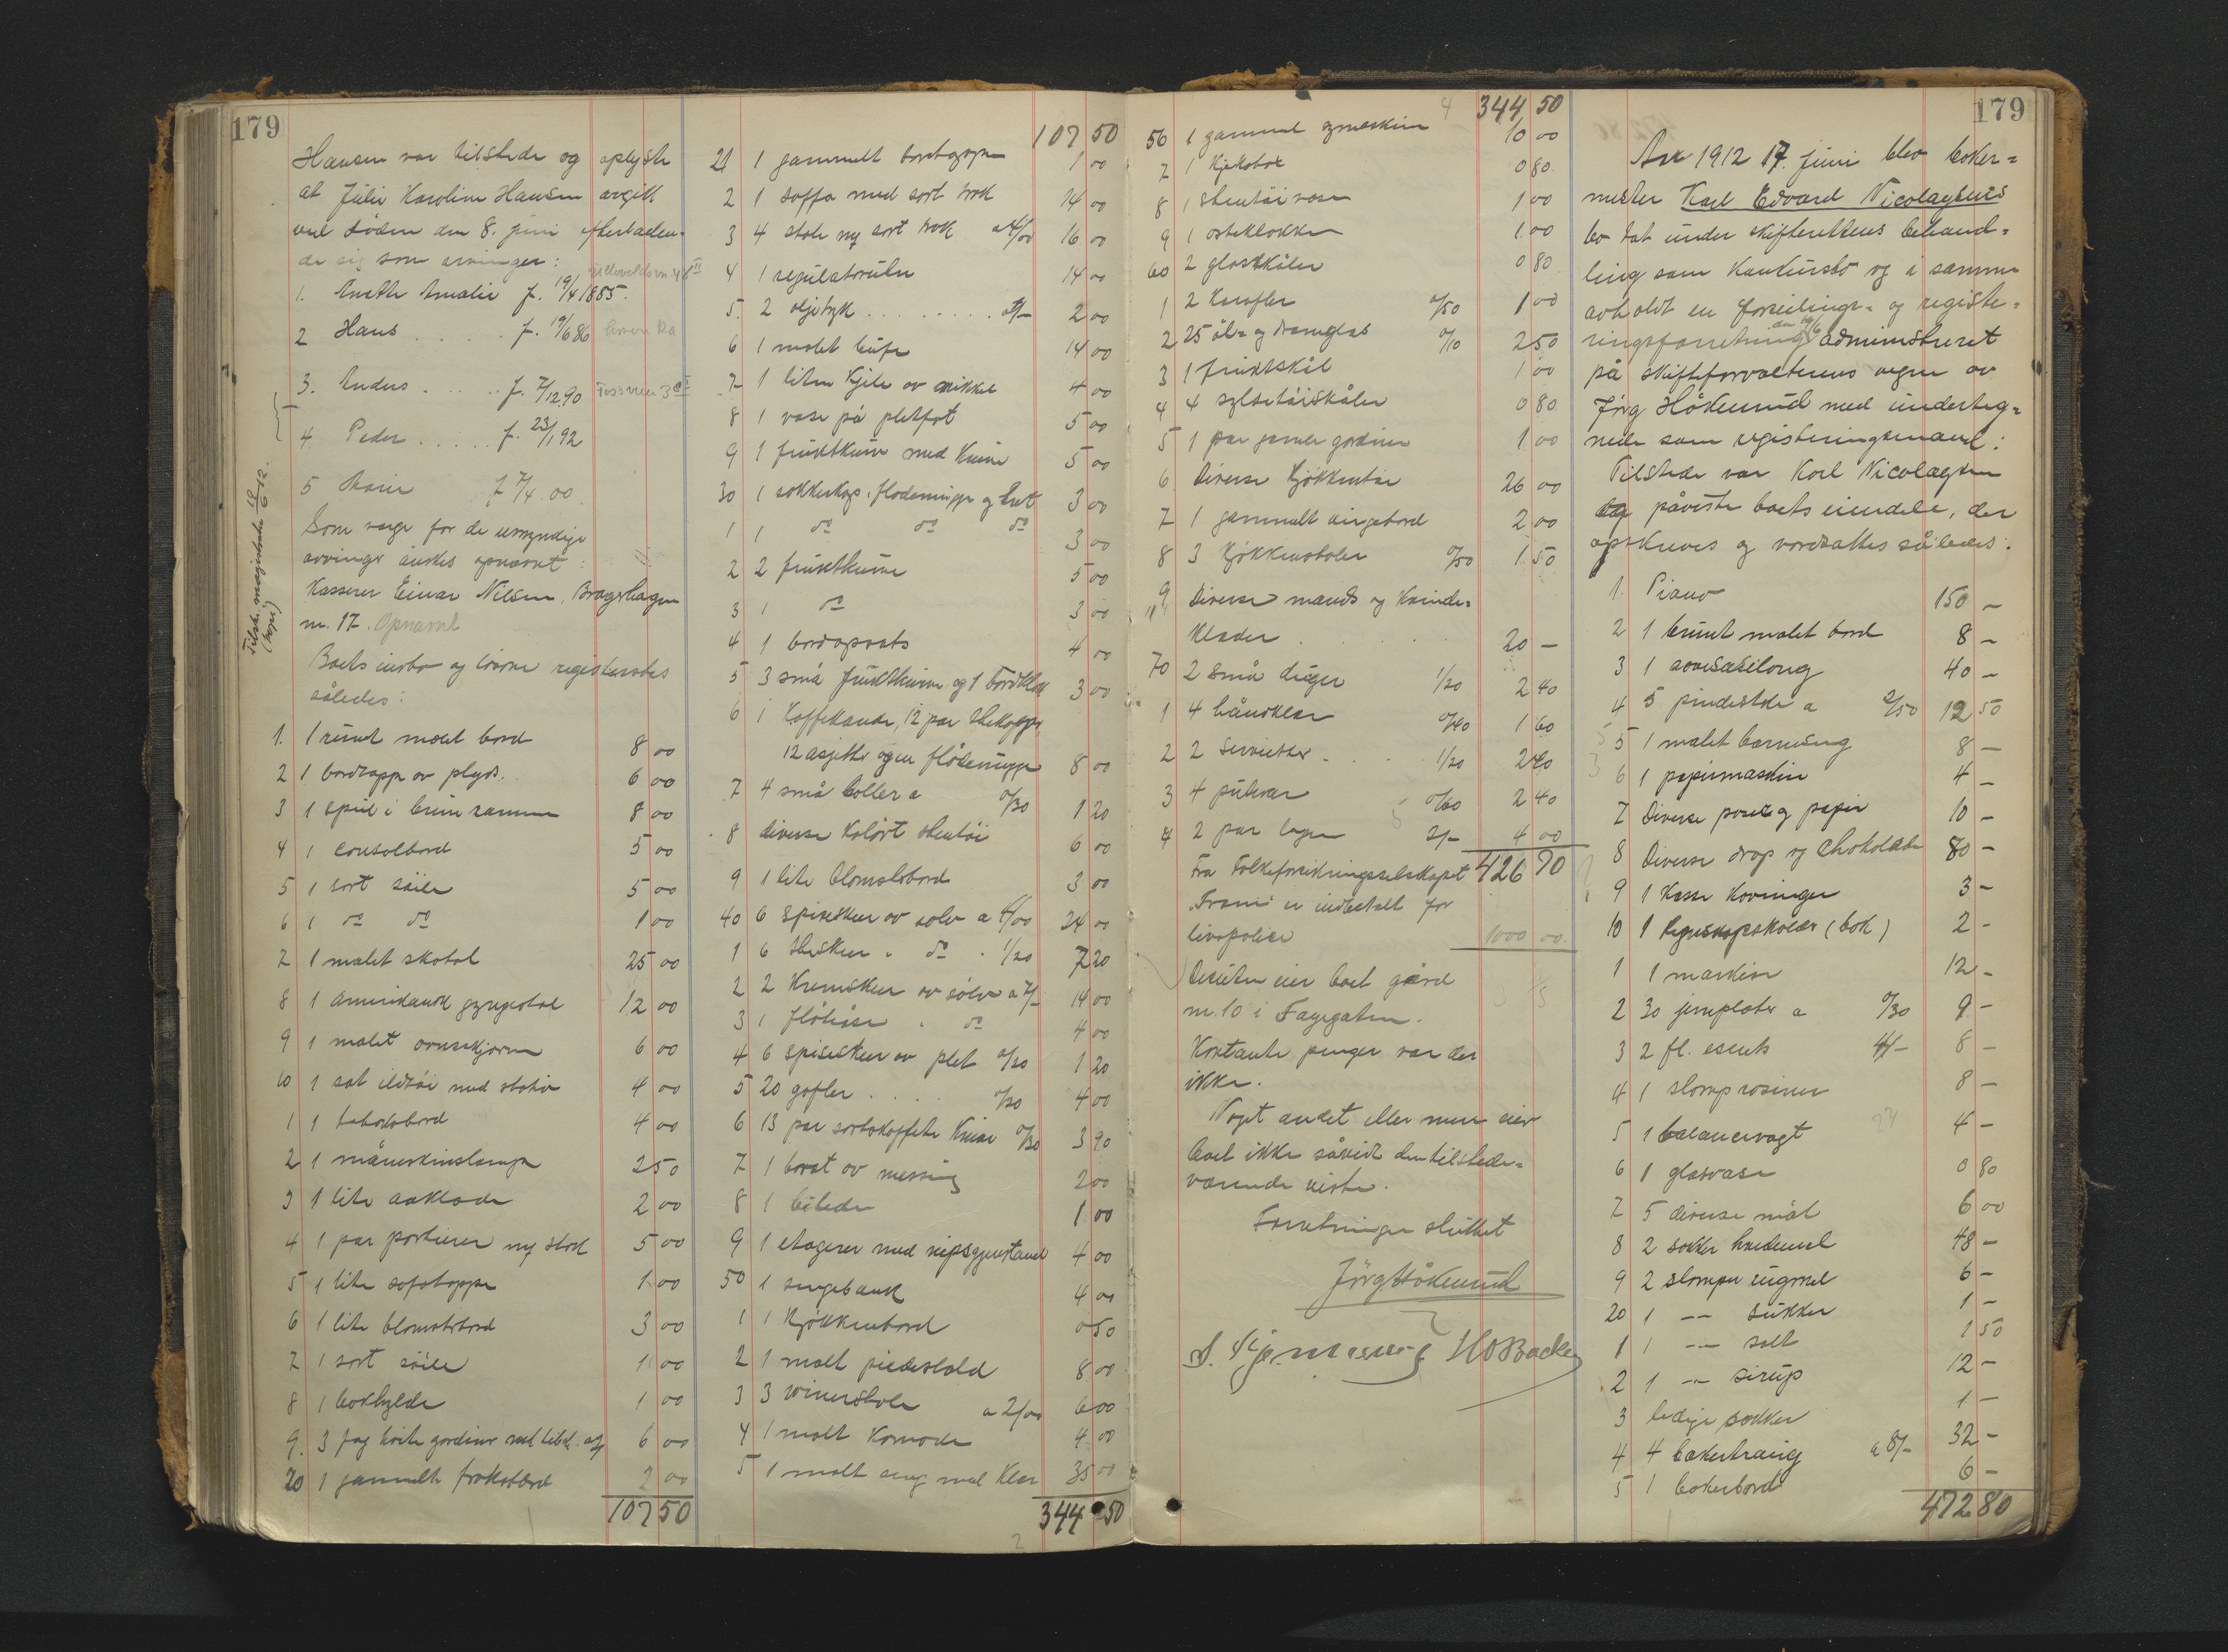 179
Hansen var tilstede og oplyste
at Julie Karoline Hansen avgik
ved døden den 8. juni efterladen-
de sig som arvinger:
1. Anethe Amalie f. 19/4 1885.
2 Hans . . . . f. 19/6 86
3. Anders . . . . f. 7/12 90
4. Peder . . . . f. 23/1 92
5 Marie f 7/4.00
Som verge for de umyndige
arvinger ønskes opnævnt:
Kasserer Einar Nilsen, Bragehagen
nr. 17. Opnævnt
Boets indbo og løsøre registrertes
således:
1. 1 rundt malet bord 8 00
2 1 bordtæppe av plyds. 6 00
3 1 speil i brun ramme 8 00
4 1 consolbord 5 00
5 1 sort søile 5 00
6 1 do do 1 00
7 1 malet skatol 25 00
8 1 amerikansk gyngestol 12 00
9 1 malet ovnskjærm 6 00
10 1 sæt ildtøi med stativ 4 00
1 1 tobaksbord 4 00
2 1 måneskinslampe 2 50
3 1 lite aaklæde 2 00
4 1 par portierer og stok 5 00
5 1 lite sofatæppe 1 00
6 1 lite blomsterbord 3 00
7 1 sort søile 1 00
8 1 bokhylde 1 00
9. 3 fag hvite gardiner med tilbeh. a 2/- 6 00
20 1 gammelt frokostbord 2 00
107 50
107 50
21 1 gammelt bordtæppe 1 00
2 1 soffa med sort træk 14 00
3 4 stole og sort træk a 4/00 16 00
4 1 regulatorur 14 00
5. 2 oljetryk . . . . . a 1/- 2 00
6 1 malet buffe 14 00
7 1 liten kjele av nikkel 4 00
8 1 vase på pletfot 5 00
9 1 fruktkurv med kniver 5 00
30 1 sukkerkop, flødemugge og bret 3 00
1 1 do do do 3 00
2 2 fruktkurve 5 00
3 1 do 3 00
4 1 bordopsats 4 00
5 3 små fruktkurve og 1 bordklok 3 00
6 1 kaffekande, 12 par thekopper,
12 asjetter og en flødemugge 8 00
7 4 små boller a 0/30 1 20
8 diverse kulørt stentøi 6 00
9 1 lite blomsterbord 3 00
40 6 spiseskeer av sølv a 4/00 24 00
1 6 theskeer " do " 1/20 7 20
2 2 kremskeer av sølv a 7/- 14 00
3 1 fløteøse " do 4 00
4 6 spiseskeer av plet 0/20 1 20
5 20 gafler . . . . 0/20 4 00
6 13 par sortskaftete knive 0/30 3 90
7 1 bræt av messing 2 00
8 1 billede 1 00
9 1 etagere med nipsgjenstand 4 00
50 1 sengebænk 4 00
1 1 kjøkkenbord 0 50
2 1 malt piedestald 8 00
3 3 wienerstole a 2/00 6 00
4 1 malt komode 4 00
5 1 malt seng med klær 35 00
344 50
344 50
56 1 gammel symaskin 10 00
7 1 0 80
8 1 stentøi vase 1 00
9 1 osteklokke 1 00
60 2 glasskåler 0 80
1 2 karafler 0/50 1 00
2 25 øl- og dramglas 0/10 2 50
3 1 fruktskål 1 00
4 4 syltetøiskåler 0 80
5 1 par gamle gardiner 1 00
6 Diverse kjøkkentøi 26 00
7 1 gammelt 2 00
8 3 kjøkkenstoler 0/50 1 50
9 Diverse mands og kvinde-
klæder 20 —
70 2 små duger 1/20 2 40
1 4 håndklær 0/40 1 60
2 2 servietter 1/20 2 40
3 4 putevar 0/60 2 40
4 2 par lagen 2/- 4 00
426 70
Fra Folkeforsikringsselskapet
"Fram" er indbetalt for
livspolice 1000 00.
Desuten eier boet gård
nr. 10 i Fayegaten.
Kontante penger var der
ikke.
Noget andet eller mere eier
boet ikke såvidt den tilstede-
værende viste.
Forretningen sluttet
Jørg Håkenrud
HOBacke
179
År 1912 17. juni blev baker-
mester Karl Edvard Nicolaysens
bo tat under skifterettens behand-
ling som konkursbo og i samme
avholdt en forseilings- og registe-
ringsforretning den 19/6 administreret
på skifteforvalterens vegne av
Jørg Håkenrud med underteg-
nede som registeringsmænd:
Tilstede var Karl Nicolaysen
og påviste boets eiendele, der
opskreves og værdsattes således:
1. Piano 150 —
2 1 brunt malet bord 8 —
3 1 40 —
4 5 pindestole a 2/50 12 50
5 1 malet barneseng 8 —
6 1 papirmaskin 4 —
7 Diverse poser og papir 10 —
8 Diverse drops og chokolade 80 —
9 1 kasse kavringer 3 —
10 1 (bok) 2 —
1 1 maskin 12 —
2 30 jernplater a 0/30 9 —
3 2 fl. esents 4/- 8 —
4 1 slump rosiner 8 —
5 1 balancevægt 4 —
6 1 glasvase 0 80
7 5 diverse mål 6 00
8 2 sække hvedemel 48 —
9 2 slumper rugmel 6 —
20 1 -- sukker 1 —
1 1 -- salt 1 50
2 1 -- sirup 12 —
3 ledige sækker 1 —
4 4 bakertraug a 8/- 32 —
5 1 bakerbord 6 —
472 80